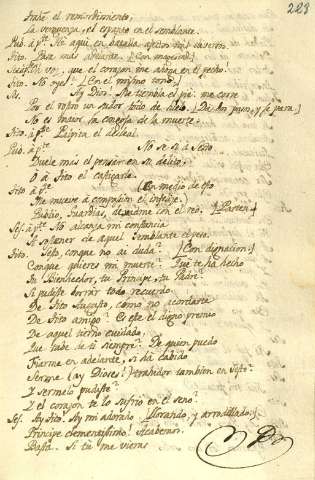 223
Trahe el remordimiento,
la verguenza, el espanto en el semblante.
Pub. á pte. He aqui en batalla afectos mil diversos
Tito. Pasa mas adelante. (Con magestad)
Sest. Oh voz, que el corazon me ahoga en el pecho!
Tito. No oyes? (Con el mismo tono)
Ses. Ay Dios! Me tiembla el pie, me corre
Por el rostro un sudor todo de hielo. (Da un paso, y se para.)
No es mayor la congoja de la muerte.
Tito. á pte. Palpita el desleal.
Pub. á pte. No se si á Sesto
Duele mas el pensar en su delito,
O á Tito el castigarle.
Tito á pte. (En medio de eso
Me mueve á compasion el infeliz.
Publio, Guardias, dexadme con el reo. (Parten.)
Ses. á pte. No alcanza mi constancia
A sostener de aquel semblante el peso.
Tito. Sesto, conque no ai duda? (Con dignacion.)
Conque quieres mi muerte? Que te ha hecho
Tu Bienhechor, tu Principe, tu Padre?
Si pudiste borrar todo recuerdo
De Tito Augusto, como no acordarte
De Tito amigo? Es este el digno premio
De aquel tierno cuidado,
Que tube de ti siempre? De quien puedo
Fiarme en adelante, si ha cabido
Serme (ay Dioses!) trahidor tambien en Sesto?
Y sermelo pudiste?
Y el corazon te lo sufrio en el seno?
Ses. Ay Tito! Ay mi adorado (llorando, y arrodillado.)
Principe clementissimo! Acabemos.
Basta. Si tu me vieras